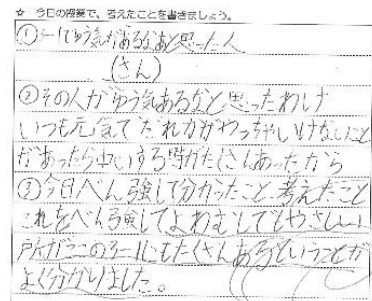 ☆ 今日の授業で、考えたことを書きましょう。
①3-1でゆう気があるなあと思った人
(さん)
②その人がゆう気あるなと思ったわけ
いつも元気でだれかがやっちゃいけないこと
があったら中いする時がたくさんあったから
③今日べん強して分かったこと考えたこと
これをべん強してよわむしでもやさしい
所がこの3-1にもたくさんあるということが
よく分かりました。